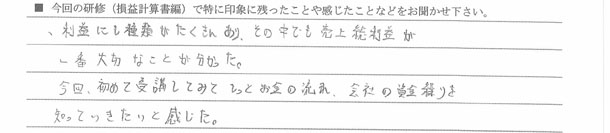 ■ 今回の研修（損益計算書編）で特に印象に残ったことや感じたことなどをお聞かせ下さい。
、利益にも種類がたくさんあり、その中でも売上総利益が
一番大切なことが分かった。
今回、初めて受講してみてもっとお金の流れ、会社の資金繰りを
知っていきたいと感じた。